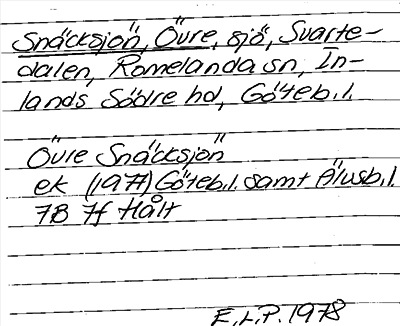 Snäcksjön, Övre, sjö, Svarte-
dalen, Romelanda sn, In-
lands Södre hd, Göteb.l.
Övre Snäcksjön
ek (1977) Göteb.l. samt Älvsb.l.
7B 7f Hålt
E.L.P. 1978